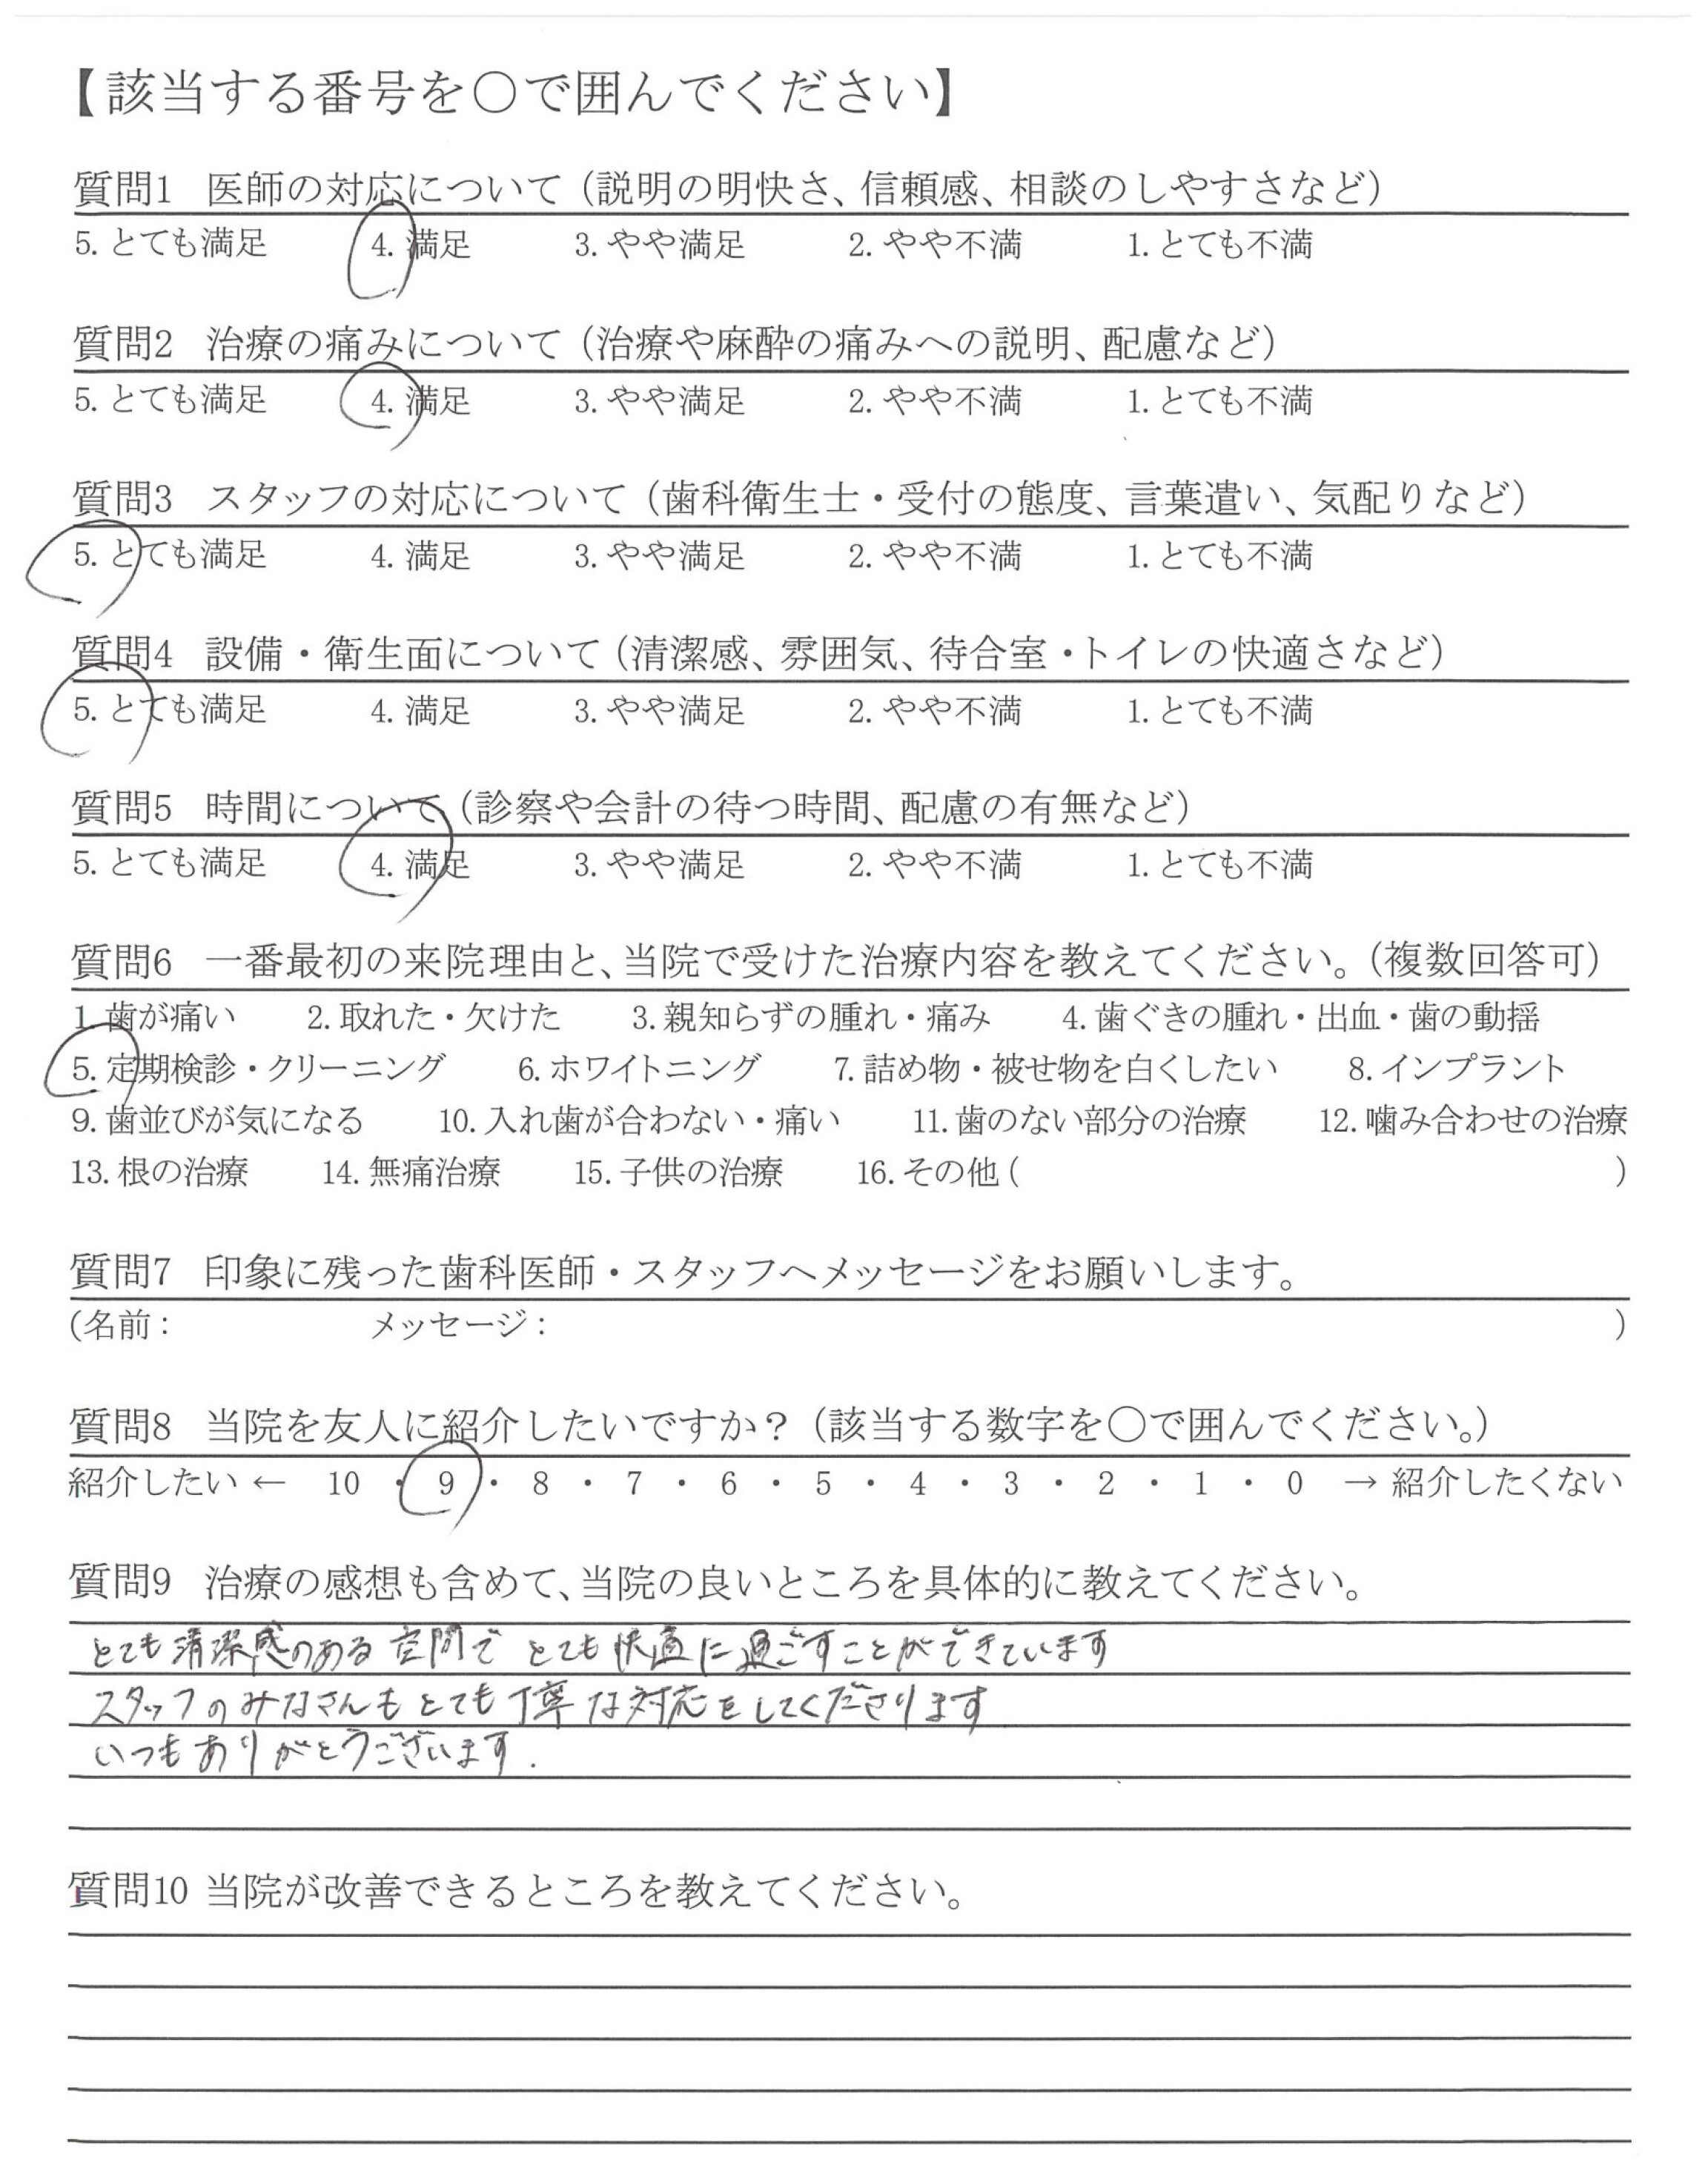 【該当する番号を〇で囲んでください】
質問1 医師の対応について（説明の明快さ、信頼感、相談のしやすさなど）
5. とても満足 4. 満足 3. やや満足 2. やや不満 1. とても不満
質問2 治療の痛みについて（治療や麻酔の痛みへの説明、配慮など）
5. とても満足 4. 満足 3. やや満足 2. やや不満 1. とても不満
質問3 スタッフの対応について（歯科衛生士・受付の態度、言葉遣い、気配りなど）
5. とても満足 4. 満足 3. やや満足 2. やや不満 1. とても不満
質問4 設備・衛生面について（清潔感、雰囲気、待合室・トイレの快適さなど）
5. とても満足 4. 満足 3. やや満足 2. やや不満 1. とても不満
質問5 時間について（診察や会計の待つ時間、配慮の有無など）
5. とても満足 4. 満足 3. やや満足 2. やや不満 1. とても不満
質問6 一番最初の来院理由と、当院で受けた治療内容を教えてください。（複数回答可）
1. 歯が痛い 2. 取れた・欠けた 3. 親知らずの腫れ・痛み 4. 歯ぐきの腫れ・出血・歯の動揺
5. 定期検診・クリーニング 6. ホワイトニング 7. 詰め物・被せ物を白くしたい 8. インプラント
9. 歯並びが気になる 10. 入れ歯が合わない・痛い 11. 歯のない部分の治療 12. 噛み合わせの治療
13. 根の治療 14. 無痛治療 15. 子供の治療 16. その他（ ）
質問7 印象に残った歯科医師・スタッフへメッセージをお願いします。
（名前： メッセージ： ）
質問8 当院を友人に紹介したいですか？（該当する数字を〇で囲んでください。）
紹介したい ← 10 ・ 9 ・ 8 ・ 7 ・ 6 ・ 5 ・ 4 ・ 3 ・ 2 ・ 1 ・ 0 → 紹介したくない
質問9 治療の感想も含めて、当院の良いところを具体的に教えてください。
とても清潔感のある空間でとても快適に過ごすことができています
スタッフのみなさんもとても丁寧な対応をしてくださります
いつもありがとうございます.
質問10 当院が改善できるところを教えてください。